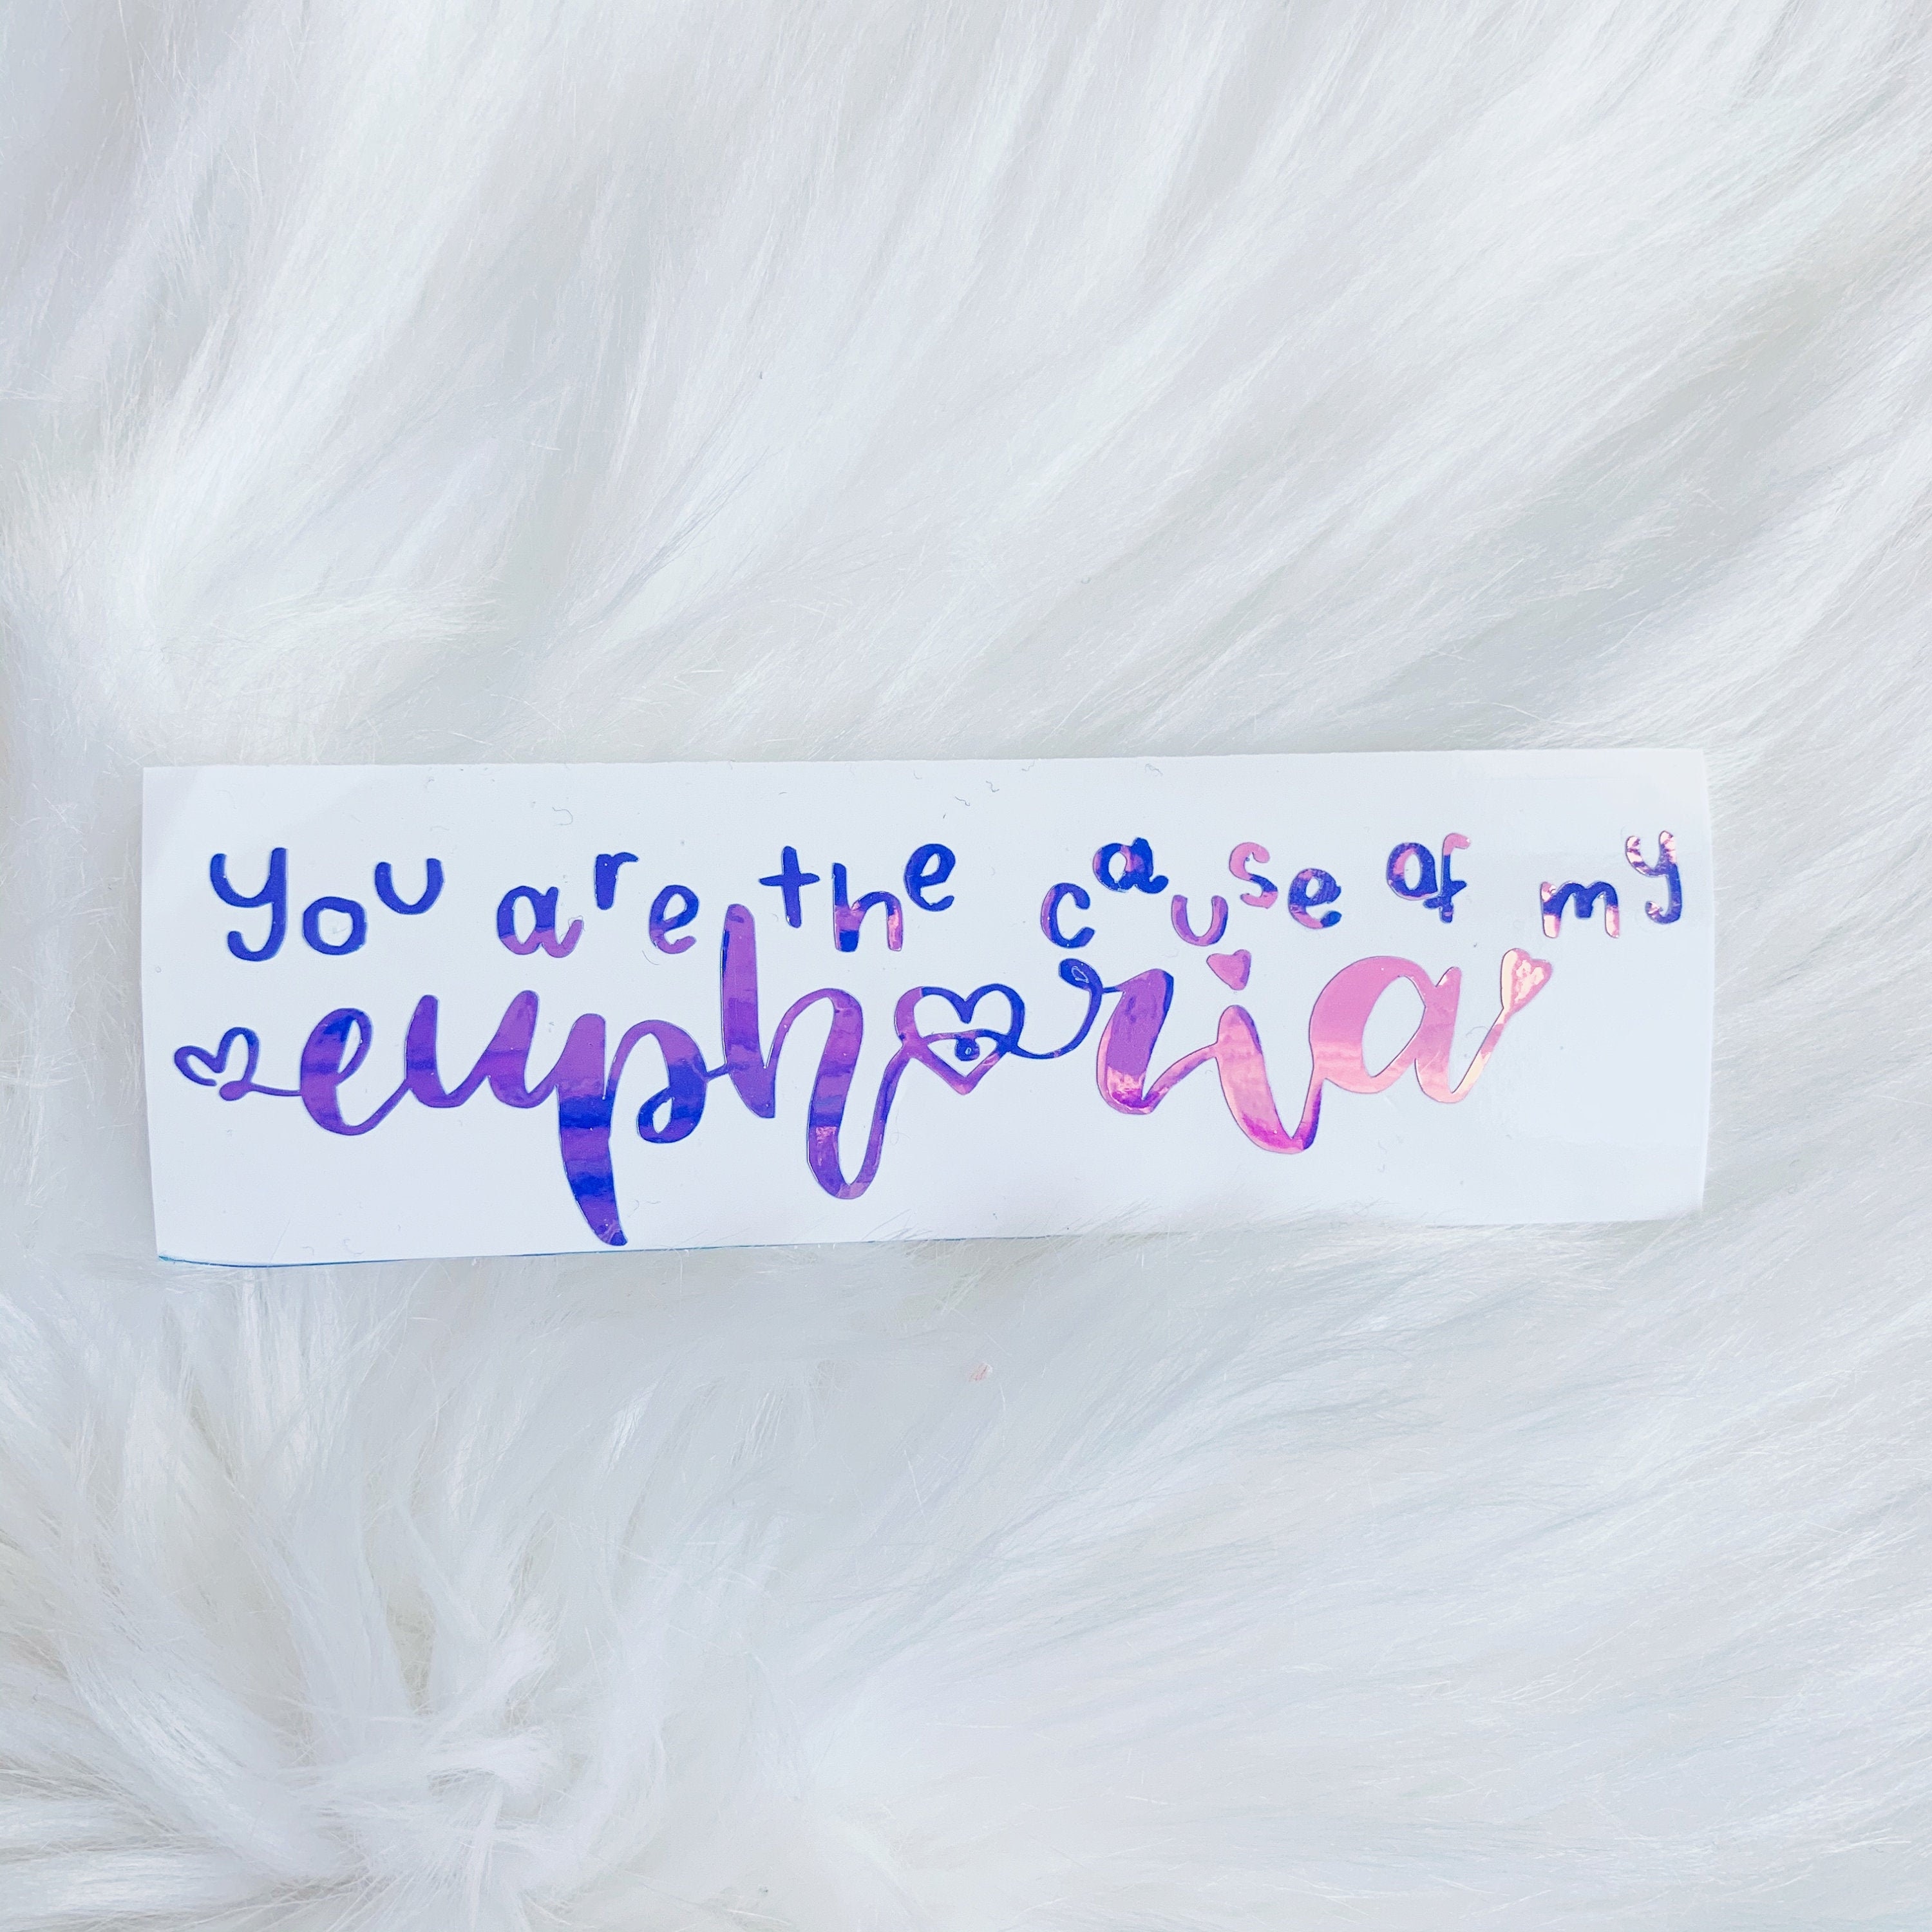 you are the cause of my
euphoria